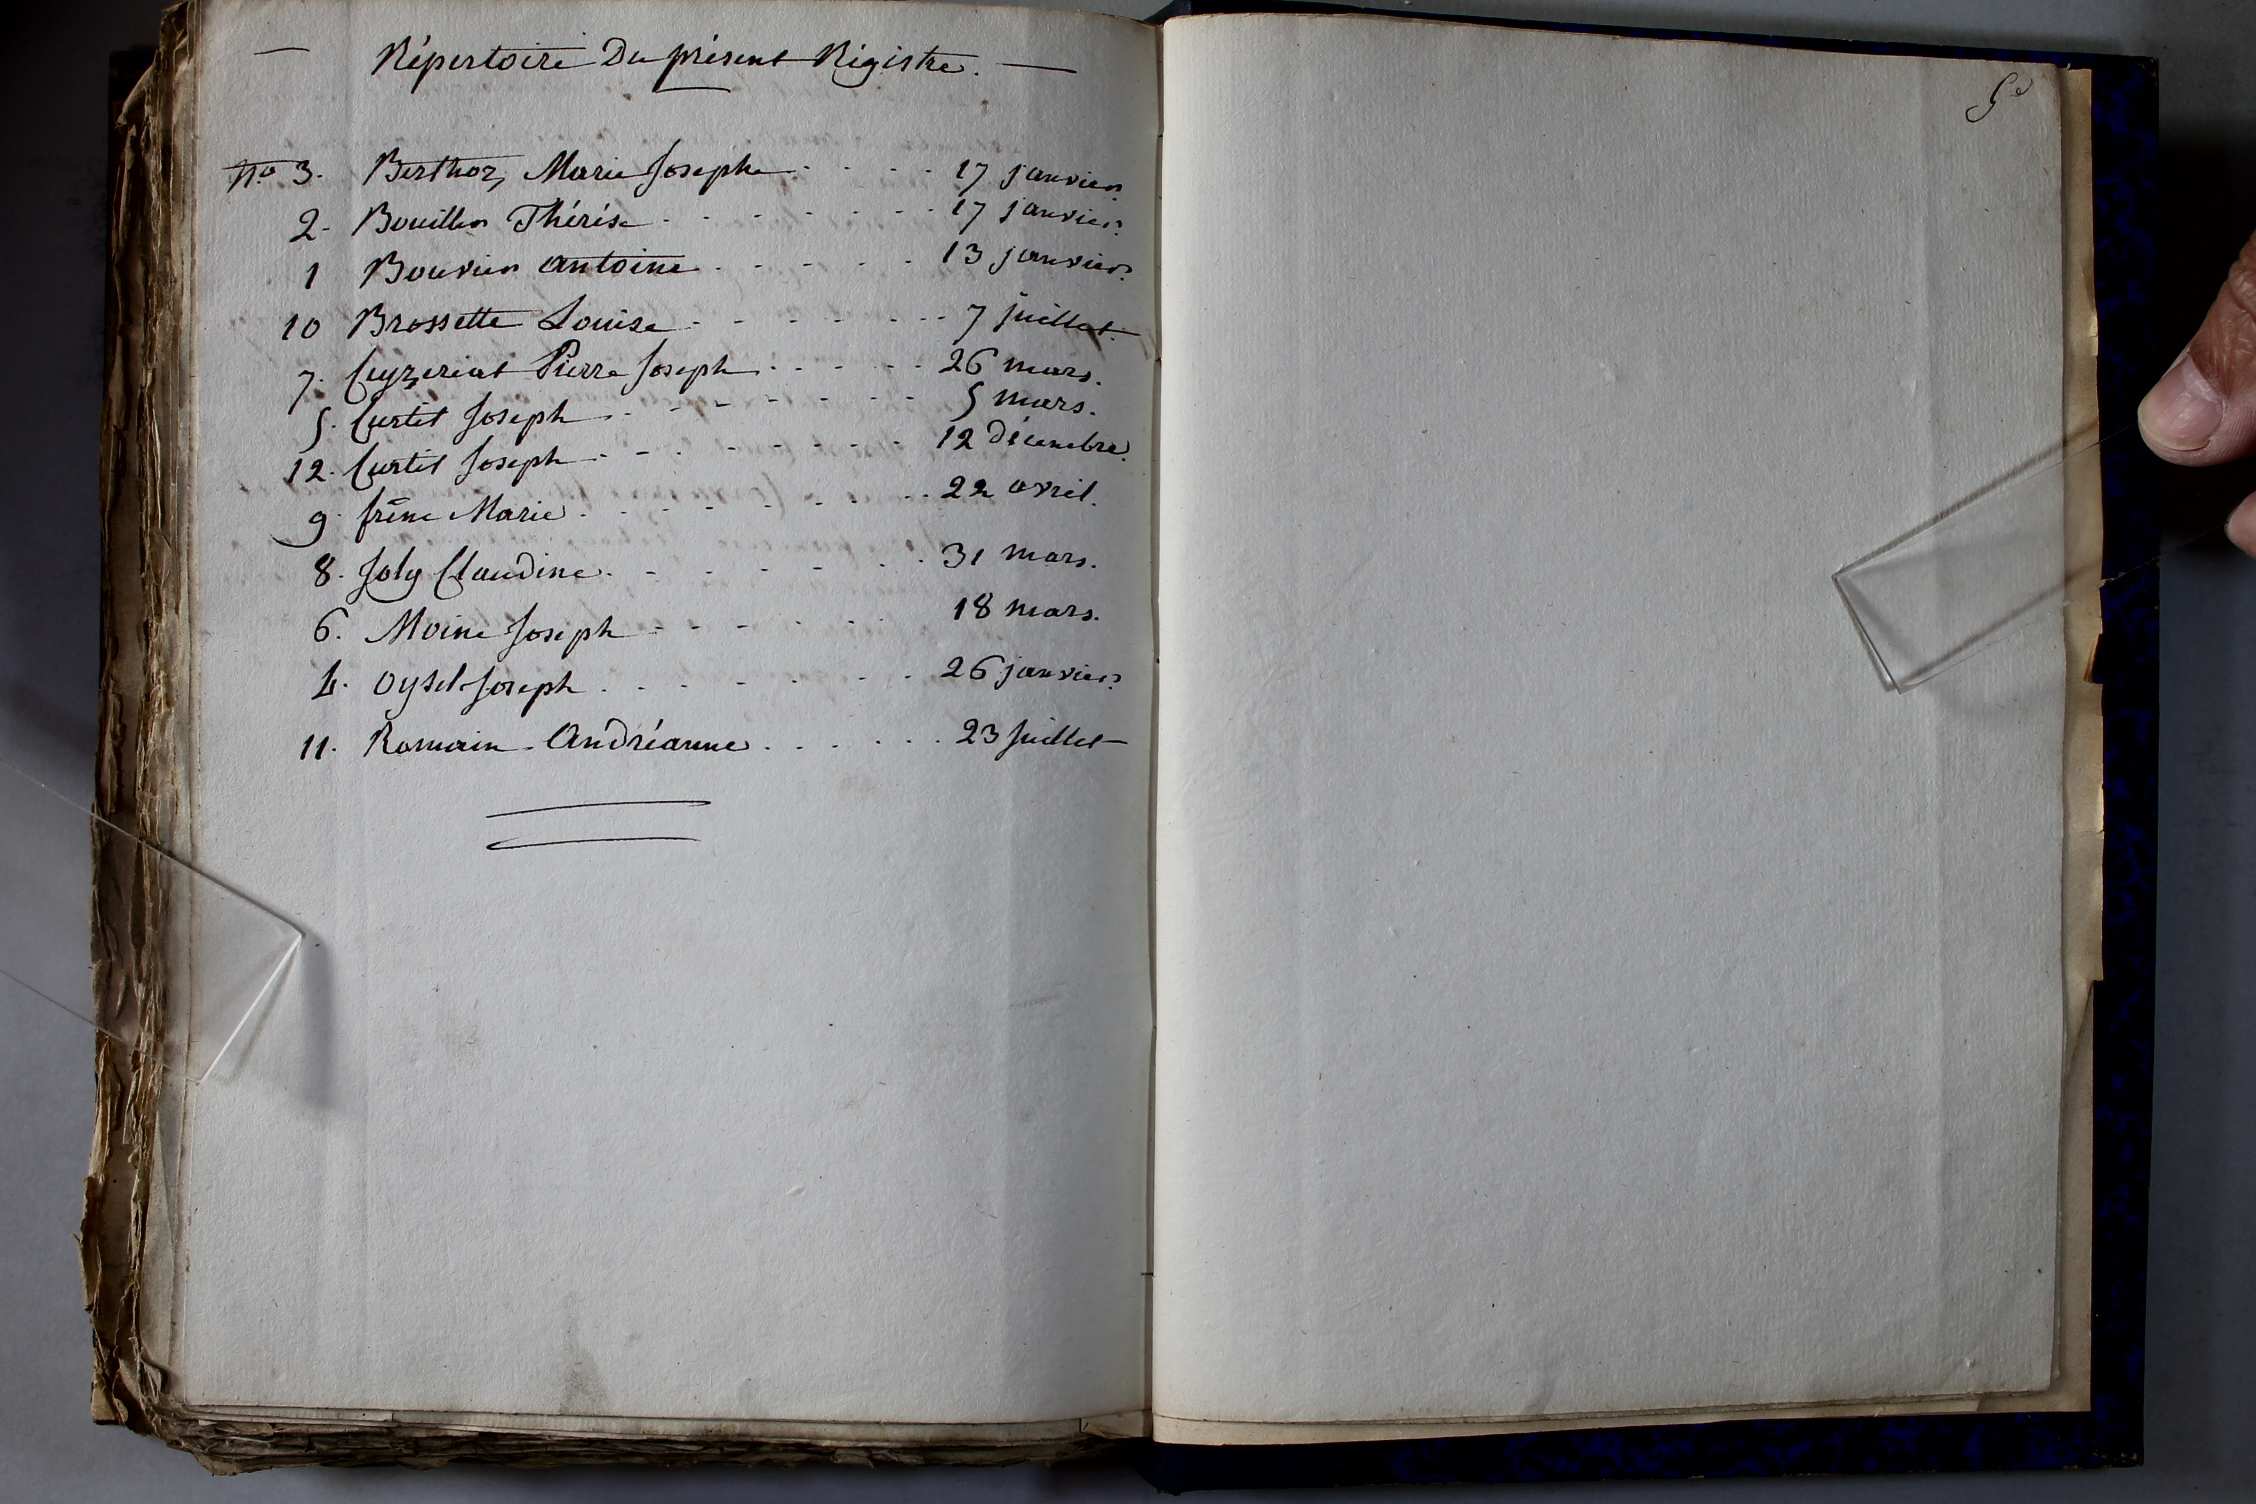 Répertoire Du présent Régistre.
No 3. Berthoz, Marie Josephe - - - - 17 janvier
2. Bouiller Thérése - - - - - - - 17 janvier
1 Bouvier antoine - - - - - 13 janvier
10 Brossette Louise - - - - - - - 7 juillet.
7. Cuyzeriat Pierre Joseph - - - - - 26 mars.
5. Curtit Joseph - - - - - - - 5 mars.
12. Curtit Joseph - - - - - - - 12 décembre.
9. frêne Marie - - - - - - - 22 avril.
8. Joly Claudine - - - - - - - 31 mars.
6. Moine Joseph - - - - - - 18 mars.
4. oysel Joseph - - - - - - - 26 janvier
11. Romain Andréanne - - - - - - 23 juillet
5e